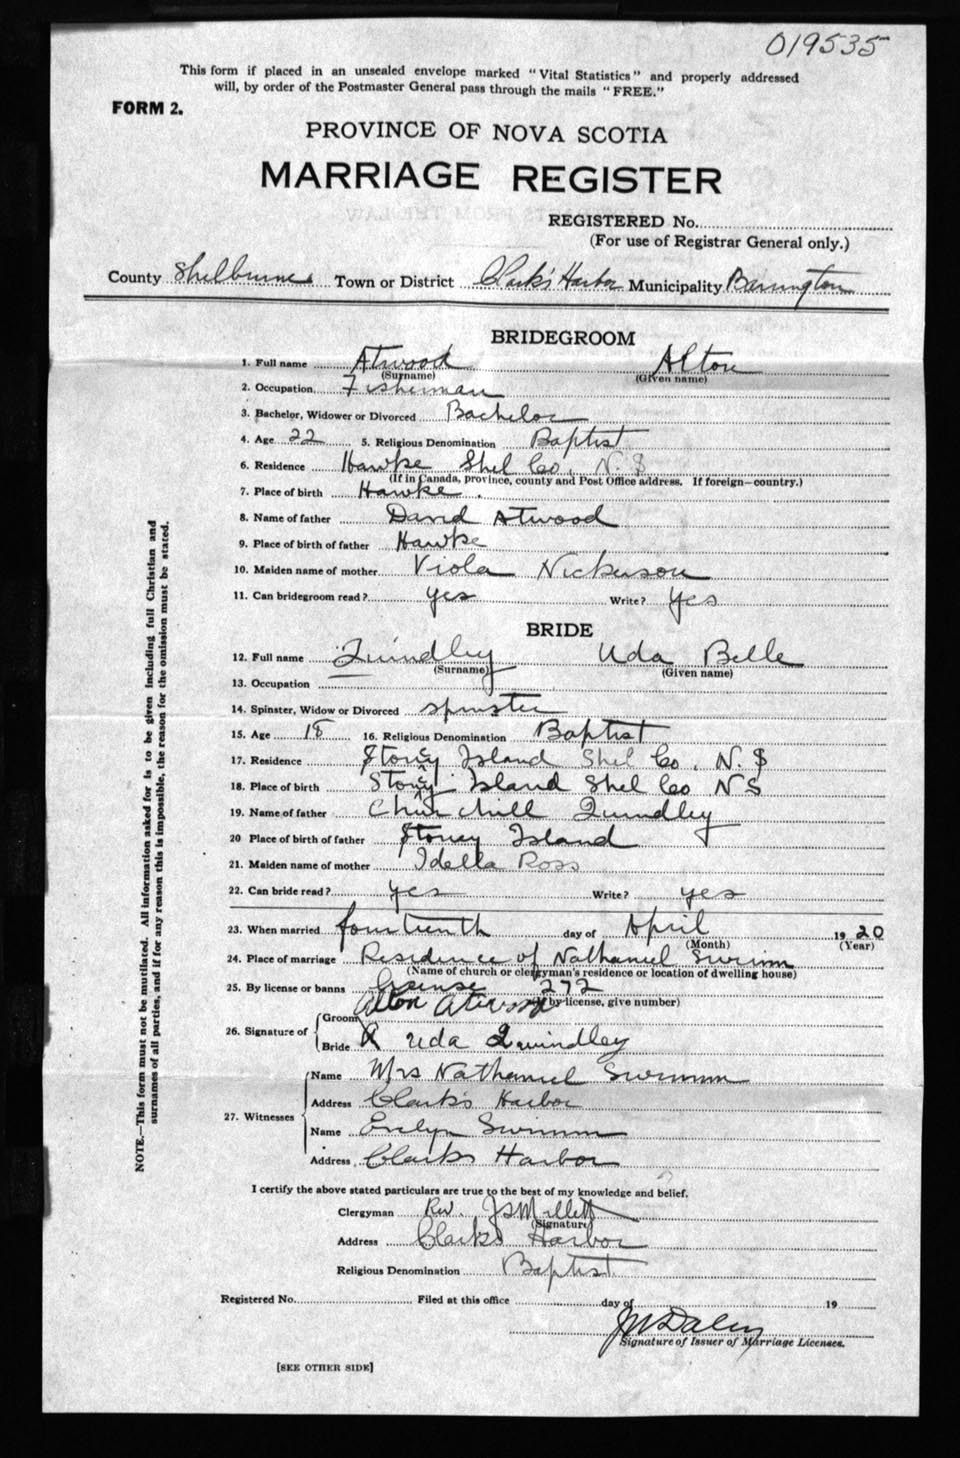 019535
This form if placed in an unsealed envelope marked "Vital Statistics" and properly addressed
will, by order of the Postmaster General pass through the mails "FREE."
FORM 2.
PROVINCE OF NOVA SCOTIA
MARRIAGE REGISTER
REGISTERED No.
(For use of Registrar General only.)
County Shelburne Town or District Clark's Harbor Municipality Barrington
BRIDEGROOM
1. Full name Atwood Alton
(Surname) (Given name)
2. Occupation Fisherman
3. Bachelor, Widower or Divorced Bachelor
4. Age 22 5. Religious Denomination Baptist
6. Residence Hawke Shel Co, N.S
(If in Canada, province, county and Post Office address. If foreign—country.)
7. Place of birth Hawke.
8. Name of father David Atwood
9. Place of birth of father Hawke
10. Maiden name of mother Viola Nickerson
11. Can bridegroom read? yes Write? yes
BRIDE
12. Full name Quindley Uda Belle
(Surname) (Given name)
13. Occupation
14. Spinster, Widow or Divorced spinster
15. Age 18 16. Religious Denomination Baptist
17. Residence Stoney Island Shel Co, N.S
18. Place of birth Stoney Island Shel Co NS
19. Name of father Churchill Quindley
20 Place of birth of father Stoney Island
21. Maiden name of mother Idella Ross
22. Can bride read? yes Write? yes
23. When married fourteenth day of April 1920
(Month) (Year)
24. Place of marriage Residence of Nathaniel Swimm
(Name of church or clergyman's residence or location of dwelling house)
25. By license or banns license 272
(If by license, give number)
26. Signature of
Groom Alton Atwood
Bride Uda Quindley
27. Witnesses
Name Mrs Nathaniel Swimm
Address Clark's Harbor
Name Evelyn Swimm
Address Clarks Harbor
I certify the above stated particulars are true to the best of my knowledge and belief.
Clergyman Rev. JS Millett
(Signature)
Address Clarks Harbor
Religious Denomination Baptist
Registered No. Filed at this office day of 19
Signature of Issuer of Marriage Licenses.
[SEE OTHER SIDE]
NOTE.—This form must not be mutilated. All information asked for is to be given including full Christian and
surnames of all parties, and if for any reason this is impossible, the reason for the omission must be stated.